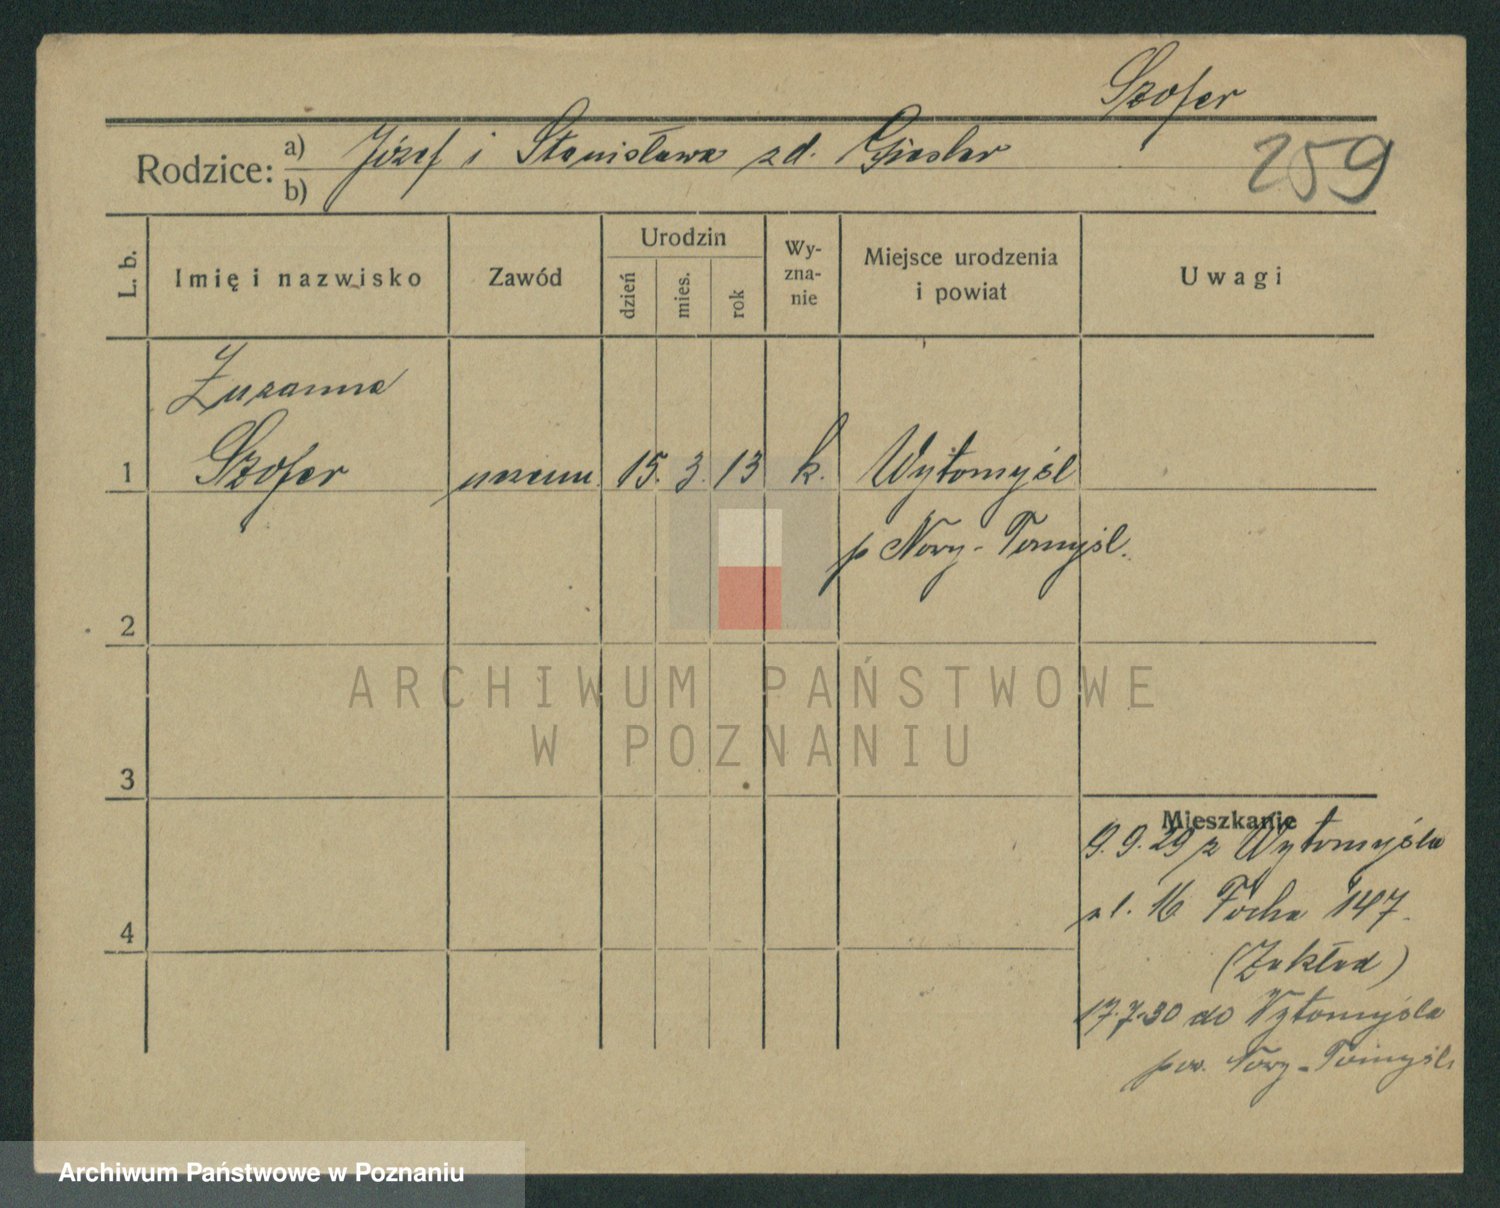 Szofer
Rodzice: a) Józef i Stanisława zd. Giesler
b)
259
L. b. Imię i nazwisko Zawód Urodzin dzień mies. rok Wy-zna-nie Miejsce urodzenia i powiat Uwagi
Zuzanna
1 Szofer uczenn. 15. 3. 13 k. Wytomyśl
p Nowy-Tomyśl.
2
ARCHIWUM PAŃSTWOWE
W POZNANIU
3
Mieszkanie
9. 9. 29 z Wytomyśla
4 ul. 16 Focha 147.
(Zakład)
17.7.30 do Wytomyśla
pow. Nowy-Tomyśl
Archiwum Państwowe w Poznaniu